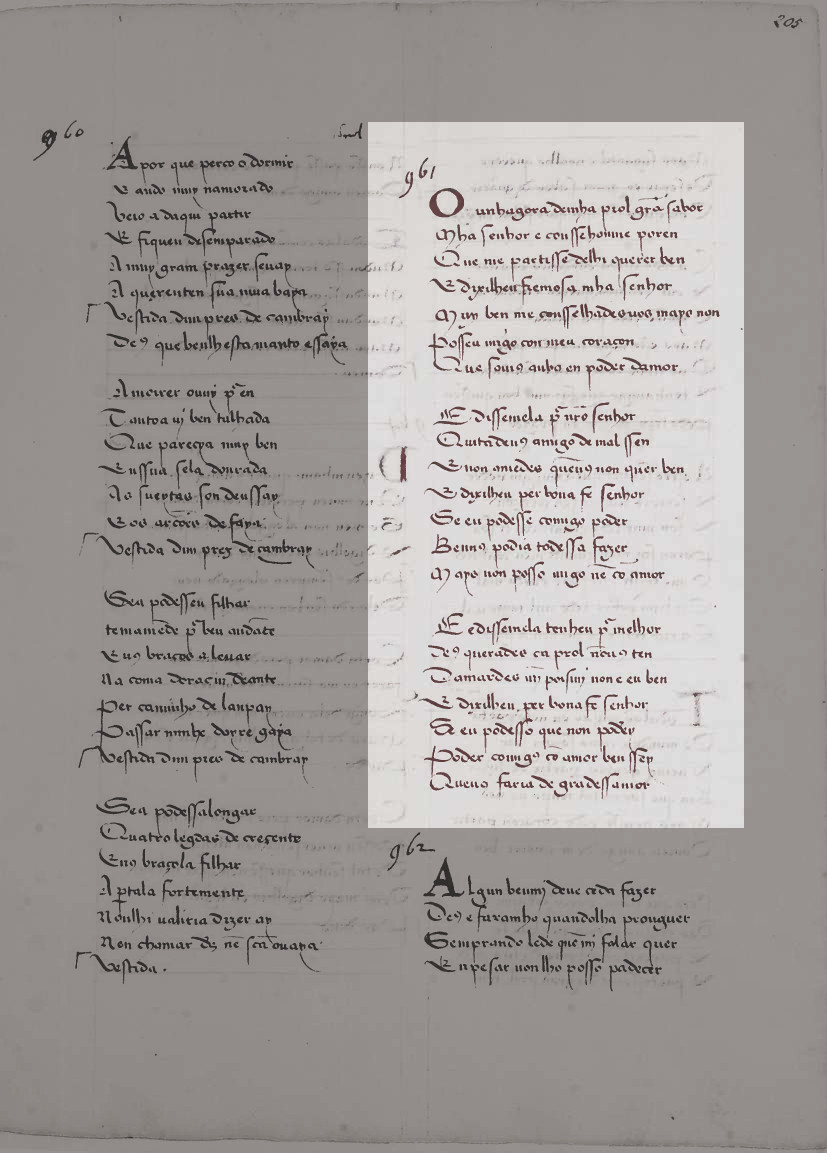 205
960
A por que perco o dormir
E ando muy namorado
Veio a daqui partir
E fiqueu desemparado
A muy gram prazer sevay
A querenten sua mua baya
Vestida dun pres de cambray
De9 que benlh esta manto essaya
A morrer ouuy pr en
Tantoa ui ben talhada
Que parecya muy ben
En ssua sela dourada
As sueytas son deussay
E os arcoes de faya
Vestida dun prez de cambray
Sea podesseu filhar
E nos braços a leuar
Na coma doraçin deante
Per caminho de lanpay
Passar minhe dorre gaya
Vestida dun pres de cambray
Sea podessalongar
Quatro legoas de creçente
E nos braçola filhar
Apertala fortemente
Non lhi ualiria dizer ay
Nen chamar ds nē
Vestida.
961
O unhagora deinha prol grã sabor
Mha senhor e conssehoume poren
Que me partisse delhi querer ben
E dixilheu fremosa mha senhor
Muy ben me consselhades uos mays non
Posseu migo con meu coraçon
Que somos anbos en poder damor
E dissemela pr nrō senhor
Quitadeu9 amigo de mal ssen
E non amedes queu9 non quer ben
E dixilheu per bona fe senhor
Se eu podesse comigo poder
Benno podia todessa fazer
Mays non posso migo nē cō amor
E edissemela tenheu pr melhor
De9 querades ca prol nou9 ten
Damardes mi poismi non e eu ben
E dixilheu per bona fe senhor
Se eu podesso que non podey
Poder comigo cō amor ben ssey
Queuos faria de gradessamor
962
Algun benmi deue ceda fazer
De9 e faramho quandolha prouguer
Semprando lede quē mi falar quer
En pesar non lho posso padecer